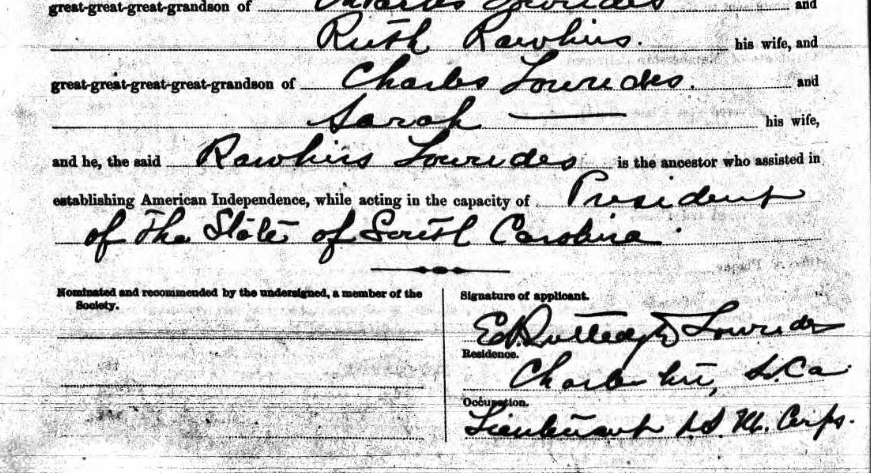 great-great-great-grandson of Charles Lowndes and
Ruth Rawlins. his wife, and
great-great-great-great-grandson of Charles Lowndes. and
Sarah — his wife,
and he, the said Rawlins Lowndes is the ancestor who assisted in
establishing American Independence, while acting in the capacity of President
of the State of South Carolina.
Nominated and recommended by the undersigned, a member of the
Society.
Signature of applicant.
Ed. Rutledge Lowndes
Residence.
Charleston, So. Ca
Occupation.
Lieutenant U.S. M. Corps.